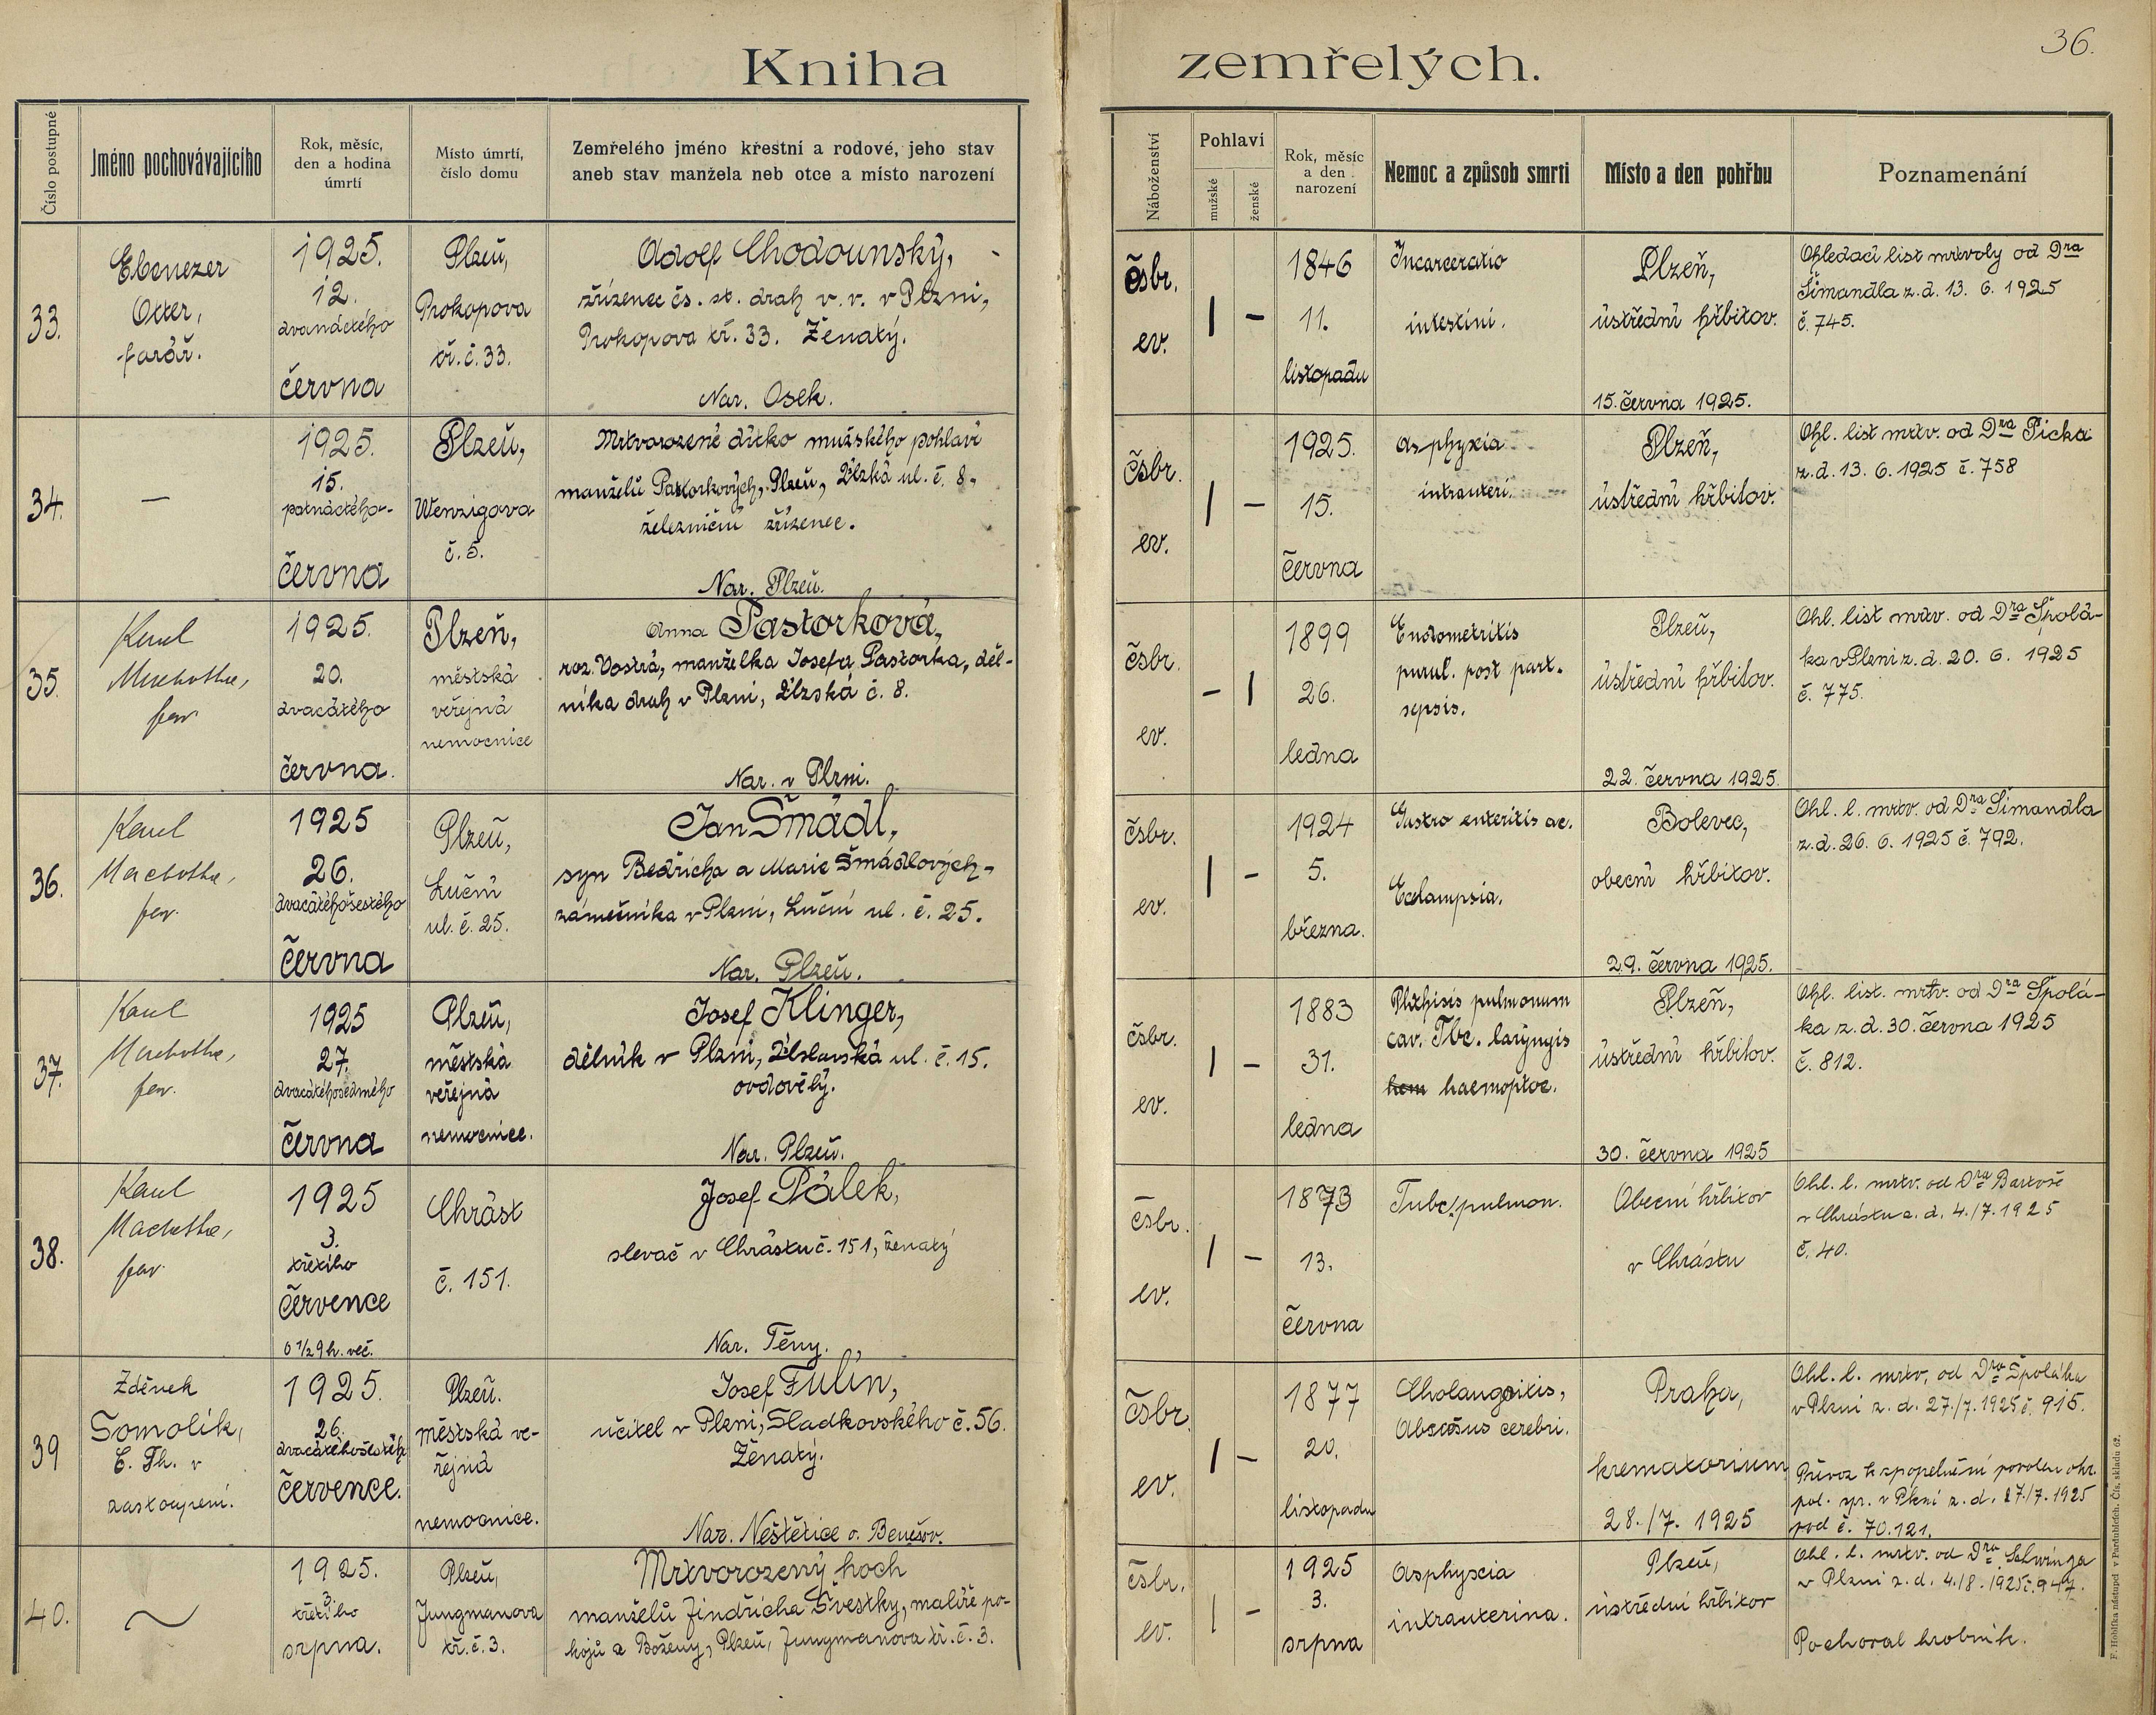 36.
Kniha zemřelých.
Číslo postupné
Jméno pochovávajícího
Rok, měsíc,
den a hodina
úmrtí
Místo úmrtí,
číslo domu
Zemřelého jméno křestní a rodové, jeho stav
aneb stav manžela neb otce a místo narození
Náboženství
Pohlaví
mužské
ženské
Rok, měsíc
a den
narození
Nemoc a způsob smrti
Místo a den pohřbu
Poznamenání
33.
Ebenezer
Otter,
farář.
1925.
12.
dvanáctého
června
Plzeň,
Prokopova
tř. č. 33.
Adolf Chodounský,
zřízenec čs. st. drah v. v. v Plzni,
Prokopova tř. 33. Ženatý.
Nar. Osek.
čsbr.
ev.
1846
11.
listopadu
Incarceratio
intestini.
Plzeň,
ústřední hřbitov.
15. června 1925.
Ohledací list mrtvoly od Dra
Šimandla z. d. 13. 6. 1925
č. 745.
34.
—
1925.
15.
patnáctého-
června
Plzeň,
Wenzigova
č. 5.
Mrtvorozené dítko mužského pohlaví
manželů Pastorkových, Plzeň, č. 8,
železniční zřízenec.
Nar. Plzeň.
čsbr.
ev.
1925.
15.
června
asphyxia
intrauteri.
Plzeň,
ústřední hřbitov.
Ohl. list mrtv. od Dra Picka
z. d. 13. 6. 1925 č. 758
35.
Karel
Machotka,
far.
1925.
20.
dvacátého
června.
Plzeň,
městská
veřejná
nemocnice
Anna Pastorková,
roz. Vostrá, manželka Josefa Pastorka, děl-
níka drah v Plzni, č. 8.
Nar. v Plzni.
čsbr.
ev.
1899
26.
ledna
Endometritis
purul. post part.
sepsis.
Plzeň,
ústřední hřbitov.
22. června 1925.
Ohl. list mrtv. od Dra Špolá-
ka v Plzni z. d. 20. 6. 1925
č. 775.
36.
Karel
Machotka,
far.
1925
26.
dvacátéhošestého
června
Plzeň,
Luční
ul. č. 25.
Jan Šmádl,
syn Bedřicha a Marie Šmádlových-
zámečníka v Plzni, Luční ul. č. 25.
Nar. Plzeň.
čsbr.
ev.
1924
5.
března.
Gastro enteritis ac.
Eclampsia.
Bolevec,
obecní hřbitov.
29. června 1925.
Ohl. l. mrtv. od Dra Šimandla
z. d. 26. 6. 1925 č. 792.
37.
Karel
Machotka,
far.
1925
27.
dvacátéhosedmého
června
Plzeň,
městská
veřejná
nemocnice.
Josef Klinger,
dělník v Plzni, ul. č. 15.
ovdovělý.
Nar. Plzeň.
čsbr.
ev.
1883
31.
ledna
Phthisis pulmonum
cav. Tbc. laryngis
hem haemoptoe.
Plzeň,
ústřední hřbitov.
30. června 1925
Ohl. list. mrtv. od Dra Špolá-
ka z. d. 30. června 1925
č. 812.
38.
Karel
Machotka,
far.
1925
3.
třetího
července
o ½9 h. več.
Chrást
č. 151.
Josef Pálek,
slevač v Chrástu č. 151, ženatý
Nar. Těny.
čsbr.
ev.
1873
13.
června
Tubc. pulmon.
Obecní hřbitov
v Chrástu
Ohl. l. mrtv. od Dra Bartoše
v Chrástu z. d. 4./7. 1925
č. 40.
39
Zděnek
Somolík,
E. Th. v
zastoupení.
1925.
26.
dvacátéhošestéh
července.
Plzeň.
městská ve-
řejná
nemocnice.
Josef Fulín,
učitel v Plzni, Sladkovského č. 56.
Ženatý.
Nar. Neštětice o. Benešov.
čsbr.
ev.
1877
20.
listopadu
Cholangoitis,
Abscesus cerebri.
Praha,
krematorium
28./7. 1925
Ohl. l. mrtv. od Dra Špoláka
v Plzni z. d. 27./7. 1925 č. 915.
Převoz k zpopelnění povolen okr.
pol. spr. v Plzni z. d. 27./7. 1925
pod č. 70.121.
40.
1925.
3.
třetího
srpna.
Plzeň,
Jungmanova
tř. č. 3.
Mrtvorozený hoch
manželů Jindřicha Švestky, malíře po-
kojů a Boženy, Plzeň, Jungmanova tř. č. 3.
čsbr.
ev.
1925
3.
srpna
Asphyxia
intrauterina.
Plzeň,
ústřední hřbitov
Ohl. l. mrtv. od Dra Schwinga
v Plzni z. d. 4./8. 1925 č. 947.
Pochoval hrobník.
F. Hoblíka nástupci v Pardubicích. Čís. skladu 62.